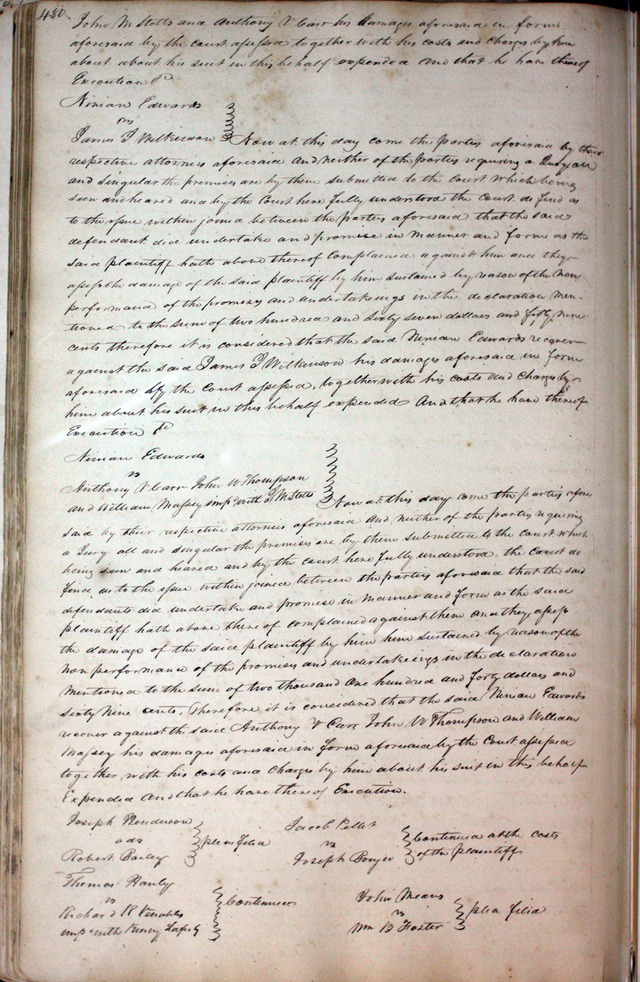 430
John M Stotts and Anthony V Carr his damages aforesaid in form
aforesaid by the court assessed together with his costs and charges by him
about about his suit in this behalf expended and that he have thereof
Execution &c
Ninian Edwards
vs
James P Wilkinson Now at this day come the parties aforesaid by their
respective attornies aforesaid and neither of the parties requiring a Jury all
and singular the premises are by them submitted to the Court which being
seen and heared and by the Court here fully understood the court do find as
to the issue within joined between the parties aforesaid that the said
defendant did undertake and promise in manner and form as the
said plaintiff hath above thereof complained against him and they
assess the damage of the said plaintiff by him sustained by reason of the non
performance of the promises and undertakings in the declaration men-
tioned to the sum of two hundred and sixty seven dollars and fifty nine
cents therefore it is considered that the said Ninian Edwards recover
against the said James P Wilkinson his damages aforesaid in form
aforesaid by the Court assessed, together with his costs and charges by
him about his suit in this behalf expended And that he have thereof
Execution &c
Ninian Edwards
vs
Anthony V Carr John W Thompson
and William Massey imp with J M Stotts Now at this day come the parties afore
said by their respective attornies aforesaid and neither of the parties requiring
a Jury all and singular the premises are by them submitted to the Court which
being seen and heared and by the court here fully understood the court do
find as to the issue within joined between the parties aforesaid that the said
defendants did undertake and promise in manner and form as the said
plaintiff hath above there of complained against them and they assess
the damage of the said plaintiff by him him sustained by reason of the
non performance of the promises and undertakeings in the declaration
mentioned to the sum of two thousand one hundred and forty dollars and
sixty nine cents, Therefore it is considered that the said Ninian Edwards
recover against the said Anthony V Carr John W Thompson and William
Massey his damages aforesaid in form aforesaid by the Court assessed
together with his costs and charges by him about his suit in this behalf
Expended And that he have thereof Execution.
Joseph Henderson
ads plea filed
Robert Bailey
Jacob Pellet
vs Continued at the costs
Joseph Bonger of the plaintiff
Thomas Hanly
vs Continued
Archard R Venables
imp with Henry
John Means
vs plea filed
Wm B Foster